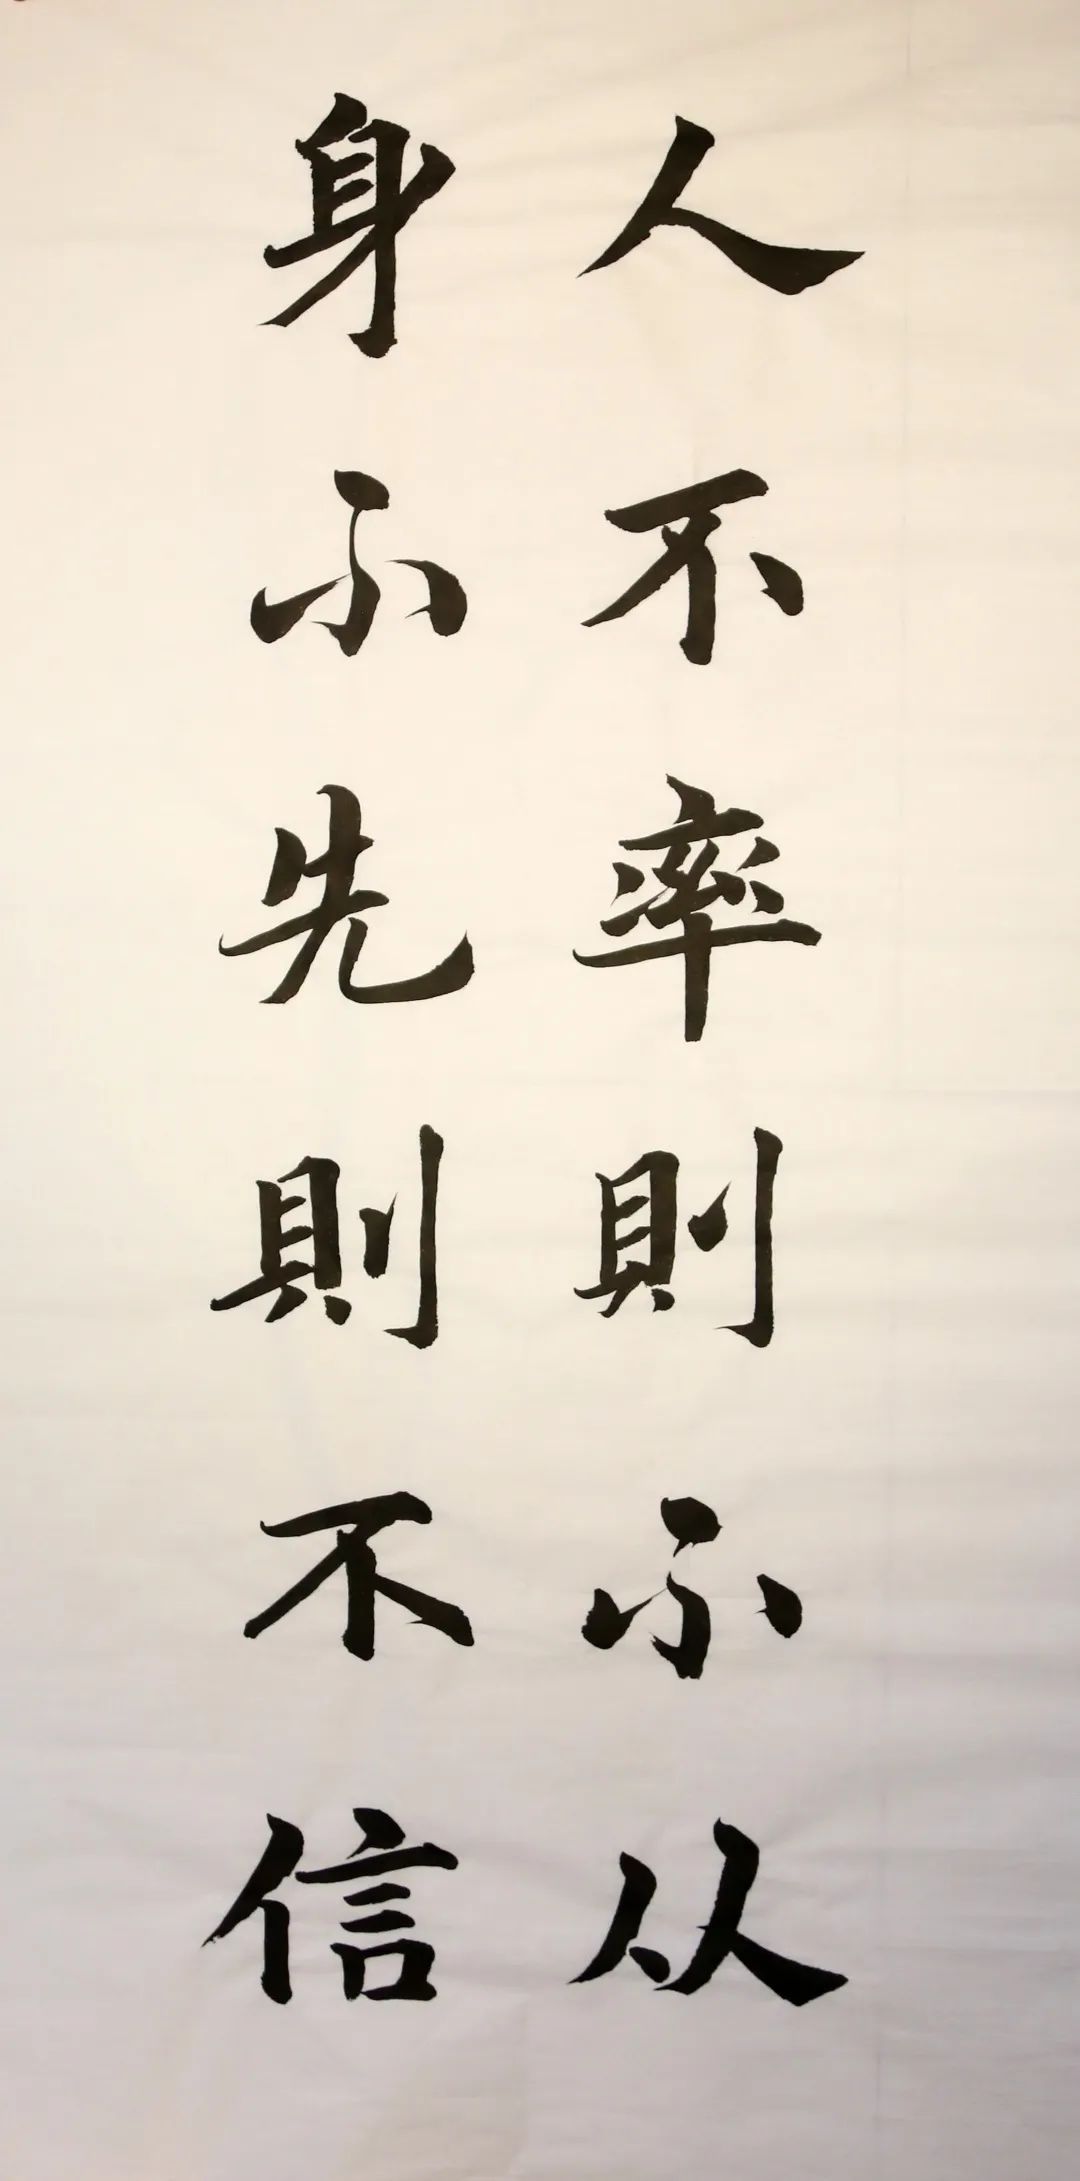 人不率則不从
身不先則不信